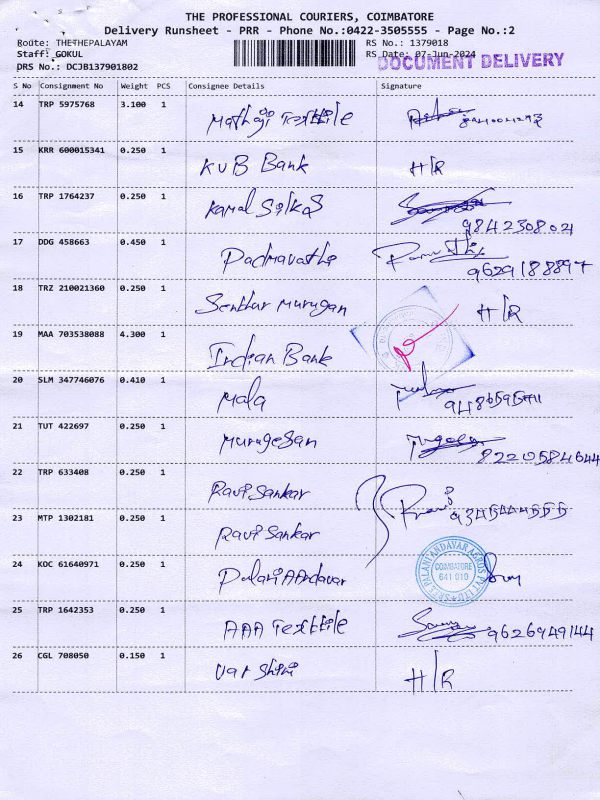 THE PROFESSIONAL COURIERS, COIMBATORE
Delivery Runsheet - PRR - Phone No.:0422-3505555 - Page No.:2
Route: THETHEPALAYAM RS No.: 1379018
Staff: GOKUL RS Date: 07-Jun-2024
DOCUMENT DELIVERY
DRS No.: DCJB137901802
S No Consignment No Weight PCS Consignee Details Signature
14 TRP 5975768 3.100 1 Mathaji Textile
15 KRR 600015341 0.250 1 KVB Bank H/R
16 TRP 1764237 0.250 1 Kamal Silks 9842308021
17 DDG 458663 0.450 1 Padmavathi 9629188897
18 TRZ 210021360 0.250 1 Senthur Murugan H/R
19 MAA 703538088 4.300 1 Indian Bank
20 SLM 347746076 0.410 1 Mala
21 TUT 422697 0.250 1 Murugesan 8220584644
22 TRP 633408 0.250 1 Ravi Sankar
23 MTP 1302181 0.250 1 Ravi Sankar
24 KOC 61640971 0.250 1 Palani Andavar
SREE PALANI ANDAVAR AGROS PVT LTD
COIMBATORE
641 019
25 TRP 1642353 0.250 1 AAA Textile 9626949144
26 CGL 708050 0.150 1 Varshini H/R